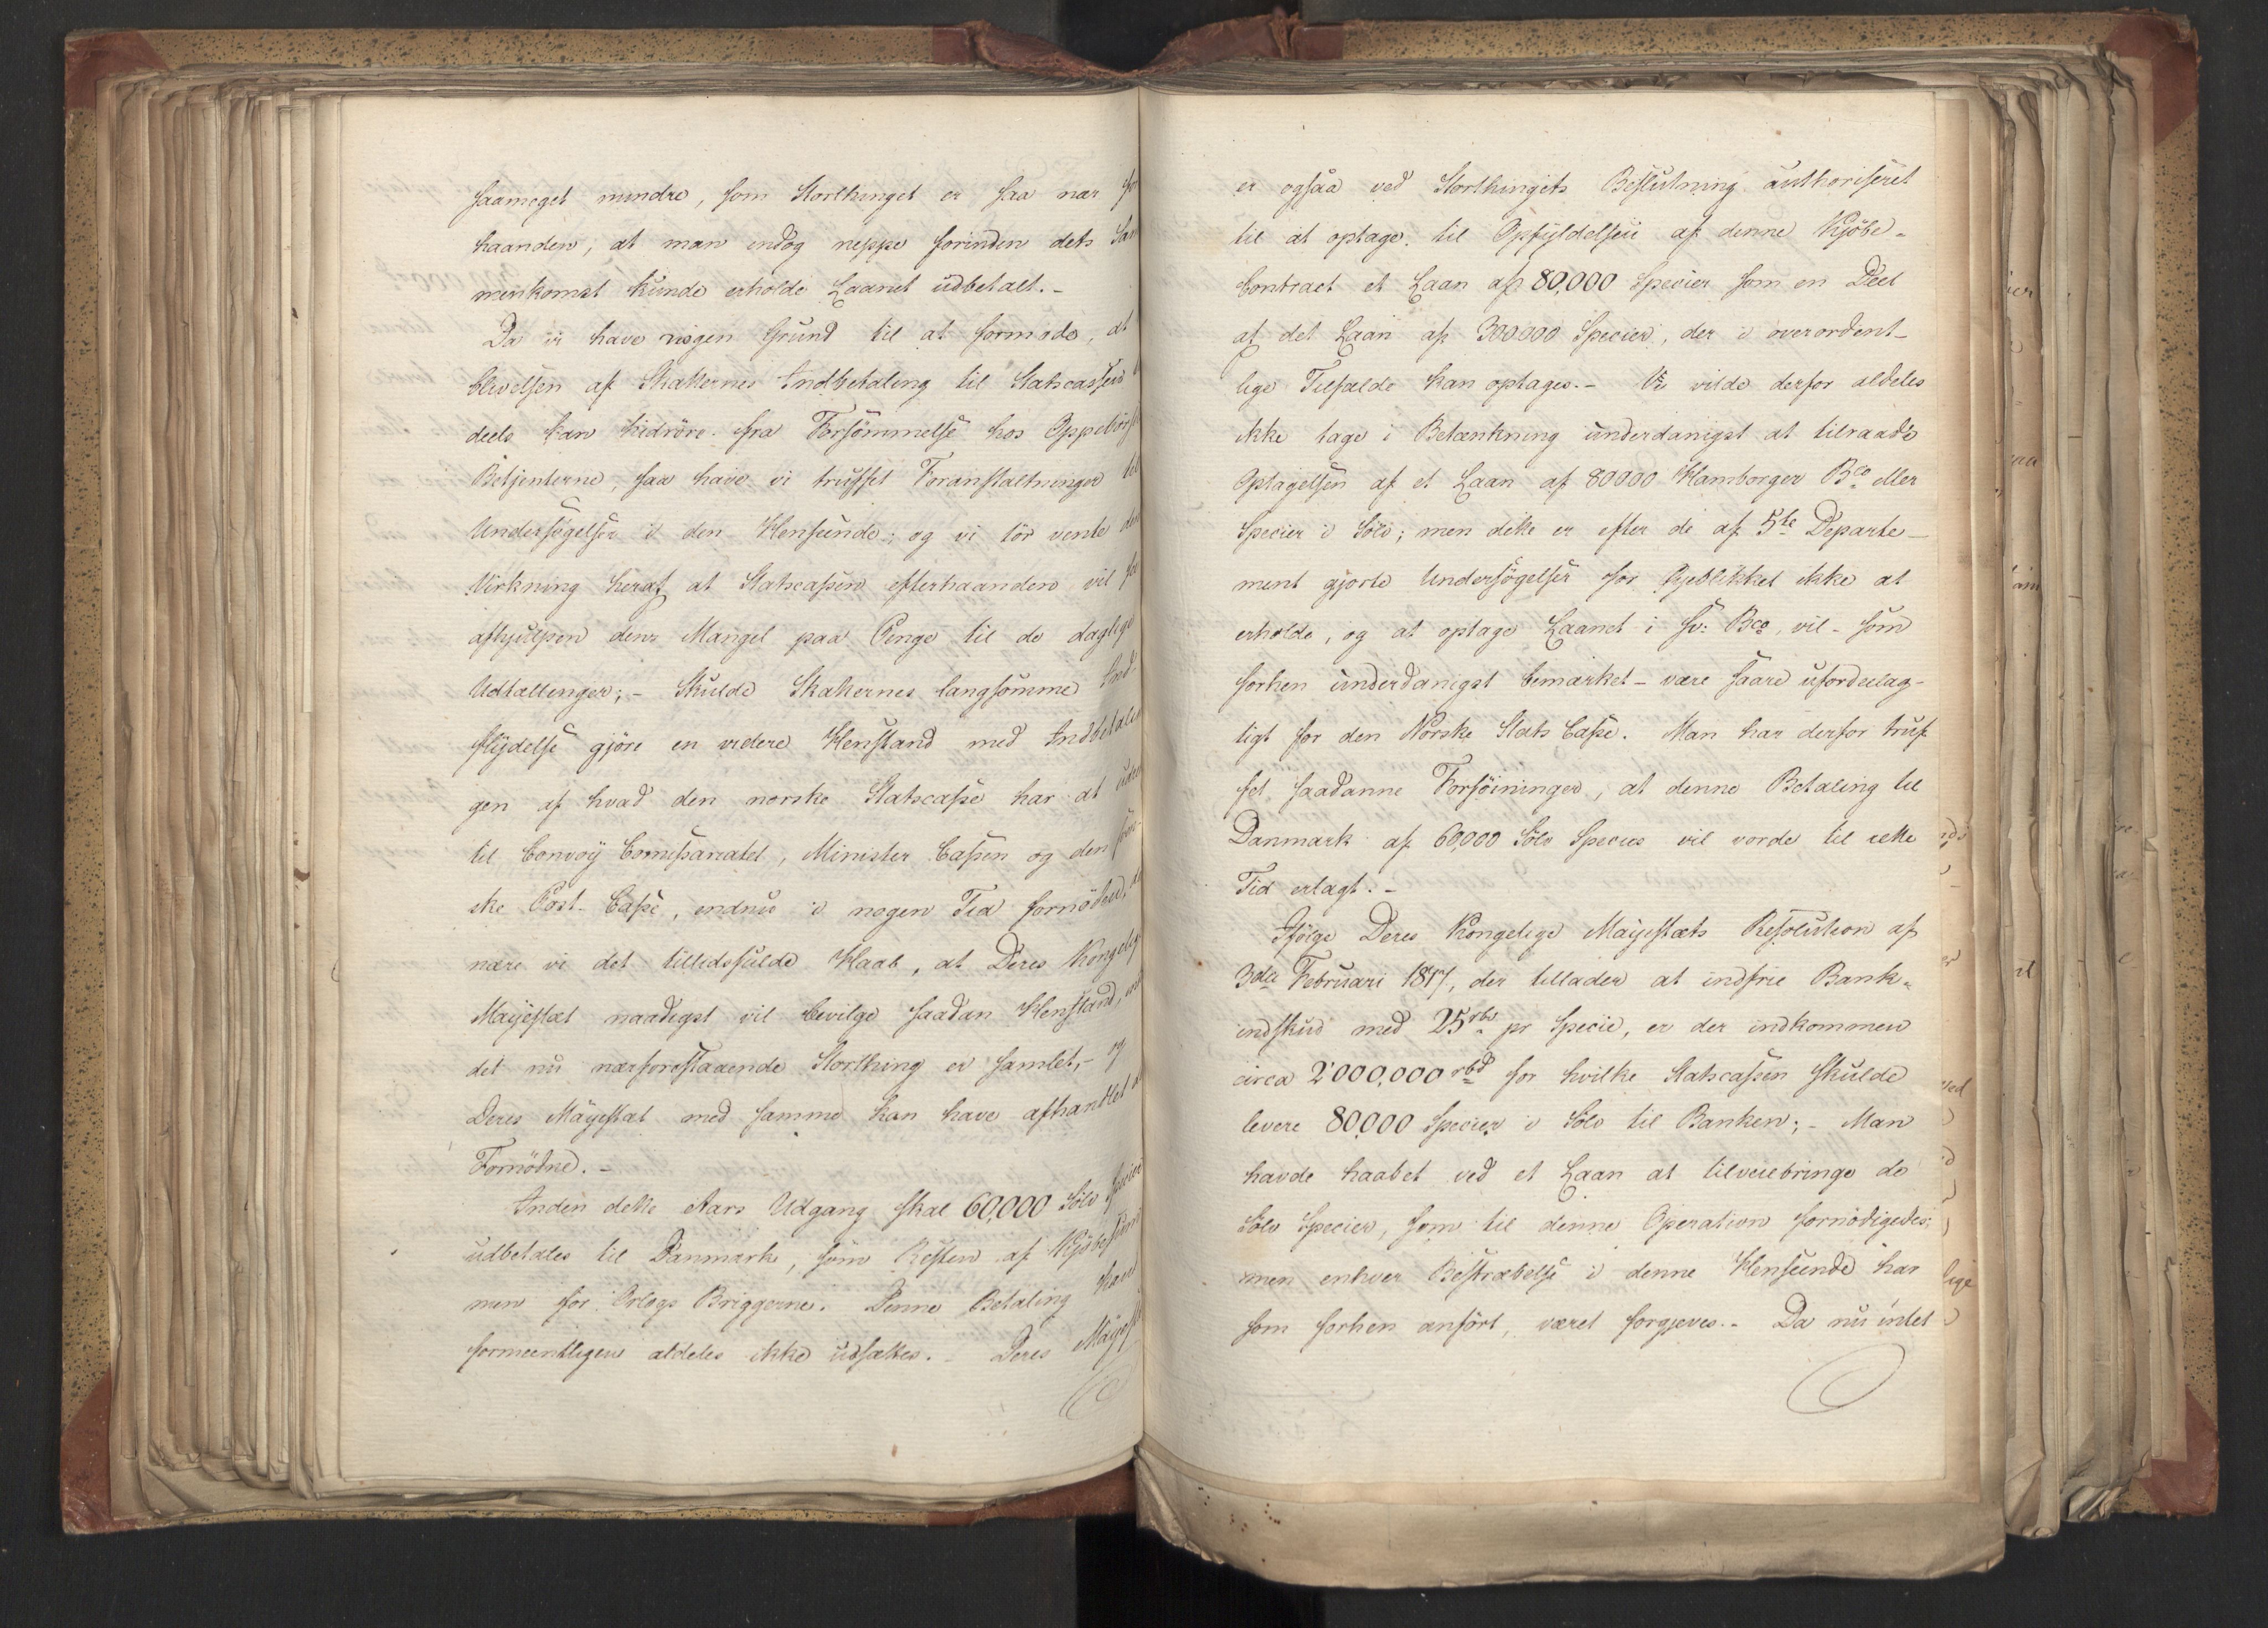 saameget mindre, som Storthinget er saa nær for
haanden, at man endog neppe forinden dets Sam
menkomst kunde erholde Laanet udbetalt. -
Da vi have nogen Grund til at formode, at
blivelsen af Skatternes Indbetaling til Statscassen
deels kan hidröre fra Forsömmelse hos Oppebörsels
Betjenterne, saa have vi truffet Foranstaltninger til
Undersögelser i den Henseende; og vi tör vente den
Virkning heraf at Statscassen efterhaanden vil
afhjulpen dens Mangel paa Penge til de daglige
Udtællinger; - Skulde Skatternes langsomme Ind-
flydelse gjöre en videre Henstand med Indbetalin
gen af hvad den norske Statscasse har at
til Convoÿ Comissariatet, Minister Cassen og den
ske Post-Casse, endnu i nogen Tid fornöden,
nære vi det tillidsfulde Haab, at Deres Kongelige
Mayestæt naadigst vil bevilge saadan Henstand,
det nu nærforestaaende Storthing er samlet, - og
Deres Mayestæt med samme kan have afhandlet
Fornödne. -
Inden dette Aars Udgang skal 60,000 Sölv Specier
udbetales til Danmark, som Resten af Kjöbesum
men for Orlogs Briggerne. Denne Betaling kan
formeentligen aldeles ikke udsættes. - Deres Mayestæt
er ogsaa ved Storthingets Beslutning authoriseret
til at optage, til Opfyldelsen af denne Kjöbe-
Contract et Laan af 80,000 Specier som en Deel
af det Laan af 300000 Specier, der i överordent-
lige Tilfælde kan optages. - Vi vilde derfor aldeles
ikke tage i Betænkning underdanigst at tilraade
Optagelsen af et Laan af 80000 Hamborger Bco eller
Specier i Sölv; men dette er efter de af 5te Departe-
ment gjorte Undersögelser for Öjeblikket ikke at
erholde, og at optage Laanet i Sv: Bco, vil - som
forhen underdanigst bemærket - være saare ufordeelag-
tigt for den Norske Stats Casse. Man har derfor truf
fet saadanne Forföininger, at denne Betaling til
Danmark af 60,000 Sölv Species vil vorde til rette
Tid erlagt. -
Ifölge Deres Kongelige Mayestæts Resolution af
3die Februari 1817, der tillader at indfrie Bank-
indskud med 25 rbd pr Specie, er der indkommen
circa 2'000,000 rbd for hvilke Statscassen skulde
levere 80,000 Specier i Sölv til Banken; - Man
havde haabet ved et Laan at tilveiebringe de
Sölv Specier, som til denne Operation fornödigedes;
men enhver Bestræbelse i denne Henseende har
som forhen anfört, været forgjeves. - Da nu intet